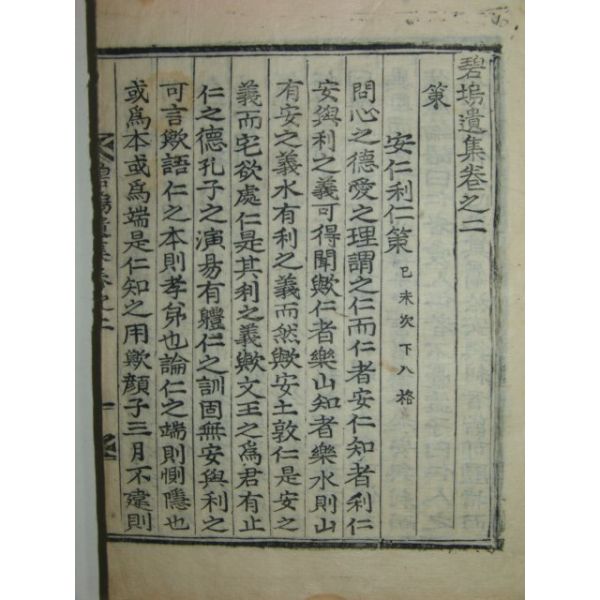 碧塢遺集卷之二
策
安仁利仁策 己未次下八格
問心之德愛之理謂之仁而仁者安仁知者利仁
安與利之義可得聞歟仁者樂山知者樂水則山
有安之義水有利之義而然歟安土敦仁是安之
義而宅欲處仁是其利之義歟文王之爲君有止
仁之德孔子之演易有軆仁之訓固無安與利之
可言歟語仁之本則孝弟也論仁之端則惻隱也
或爲本或爲端是仁知之用歟顔子三月不違則
碧塢遺集卷之二 一